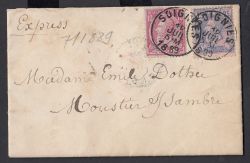 Express
711889
SOIGNIES
SOIGNIES
1889
Madame Emile Dothée
Moustier s/Sambre